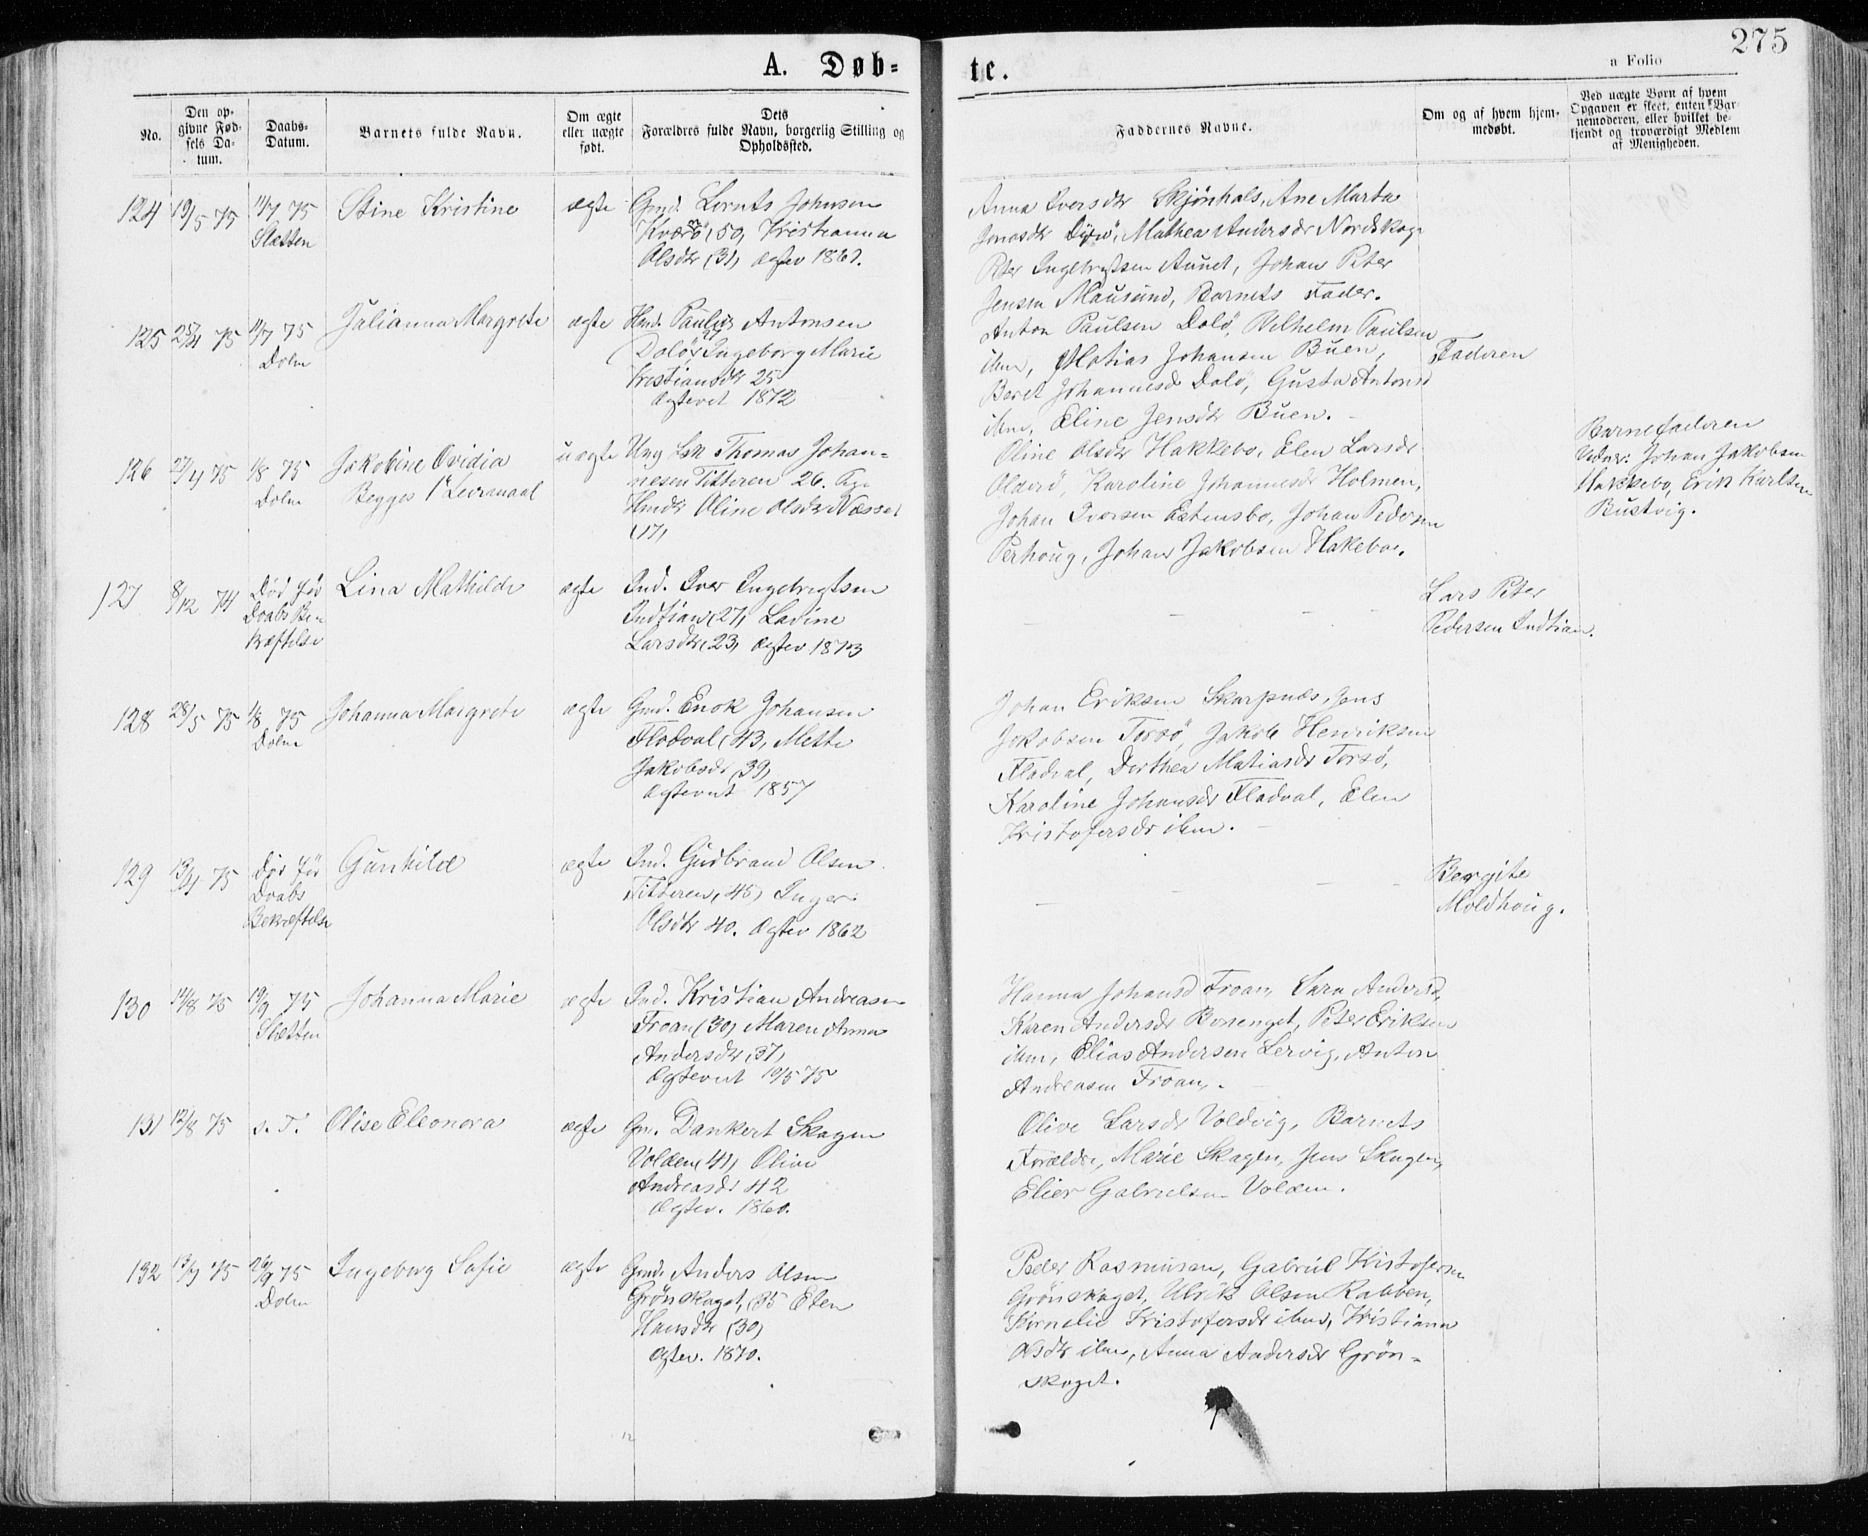 275
A. Døb=
te.
a Folio
No.
Den op-
givne Fød-
sels Da-
tum.
Daabs-
Datum.
Barnets fulde Navn.
Om ægte
eller uægte
født.
Dets
Forældres fulde Navn, borgerlig Stilling og
Opholdssted.
Faddernes Navne.
Om og af hvem hjem-
medøbt.
Ved uægte Børn af hvem
Opgaven er skeet, enten Bar-
nemoderen, eller hvilket be-
kjendt og troværdigt Medlem
af Menigheden.
124 19/5 75 11/7 75 Stine Kristine ægte Gmd. Lornts Johnsen
Sletten Kværø (50) Kristianna
Olsdtr (31) ægtev 1861.
Anna Iversdtr Skjønhals, Ane Marta
Jonasdtr Dyrø, Mathea Andersdr Nordskag
Peter Ingebrigtsen Aunet, Johan Peter
Jensen Mausund, Barnets Fader.
125 25/4 75 11/7 75 Julianna Margrete ægte Hmd. Paulus Antonsen
Dolm Dolø, Ingeborg Marie
Kristiansdtr 25
ægteviet 1872
Anton Paulsen Dolø, Vilhelm Paulsen
ibm, Matias Johansen Buen,
Beret Johannesd Dolø, Gusta Antonsd
ibm, Eline Jensdtr Buen.
Faderen
126 27/4 75 1/8 75 Jakobine Ovidia uægte Ung Thomas Johan-
Dolm Begges 1ste Leiermaal nesen Titteren 26.
Oline Olsdtr Næsset
(17)
Oline Olsdtr Hakkebo, Elen Larsdr
Olderø, Karoline Johannesdr Holmen,
Johan Iversen Estensbo, Johan Pedersen
Perhoug, Johan Jakobsen Hakeboe.
Barnefaderen
Vidner: Johan Jakobsen
Hakkebo, Erik Karlsen
Bustvig.
127 8/12 74 Død før Lina Mathilde ægte Ind. Iver Ingebrigtsen
Daabs Be- Indtian (27) Ladine
kræftelse Larsdtr (23) ægtev 1873
Lars Peter
Pedersen Indtian.
128 28/5 75 1/8 75 Johanna Margrete ægte Gmd. Enok Johansen
Dolm Fladval (43) Mette
Jakobsdr (39)
ægteviet 1857
Johan Eriksen Skarpnæs, Jens
Jakobsen Torsø, Jakob Henriksen
Fladval, Dorthea Matiasdr Torsø,
Karoline Johansdr Fladval, Elen
Kristofersdr ibm.
129 13/4 75 Død før Gunhild ægte Ind. Gudbrand Olsen
Daabs Titteren (45) Inger
Bekræftelse Olsdtr 40. ægtev 1862
Bergite
Moldhoug.
130 14/8 75 19/9 75 Johanna Marie ægte Ind. Kristian Andreasen
Sletten Froan (30) Maren Anna
Andersdtr (37)
ægteviet 19/5 75
Hanna Johansd Froan, Sara Andersd,
Karen Andersdr Borrenget, Peter Eriksen
ibm, Elias Andersen Lervig, Anton
Andreasen Froan.
131 12/8 75 s. T. Olise Eleonora ægte Gm. Dankert Skagen
Volden (41) Olive
Andreasdr 42
ægtev. 1860.
Olive Larsdr Voldvig, Barnets
Forældre, Marie Skagen, Jens Skagen,
Elier Gabrielsen Volden.
132 13/9 75 26/9 75 Ingeborg Sofie ægte Gmd. Anders Olsen
Dolm Grønskaget, (35 Elen
Hansdtr (30)
ægtev. 1870.
Peder Rasmusen, Gabriel Kristofersen
Grønskaget, Ulrik Olsen Rabben,
Kornelie Kristofersdr ibm, Kristiana
Olsdtr ibm, Anna Andersdr Grøn-
skaget.